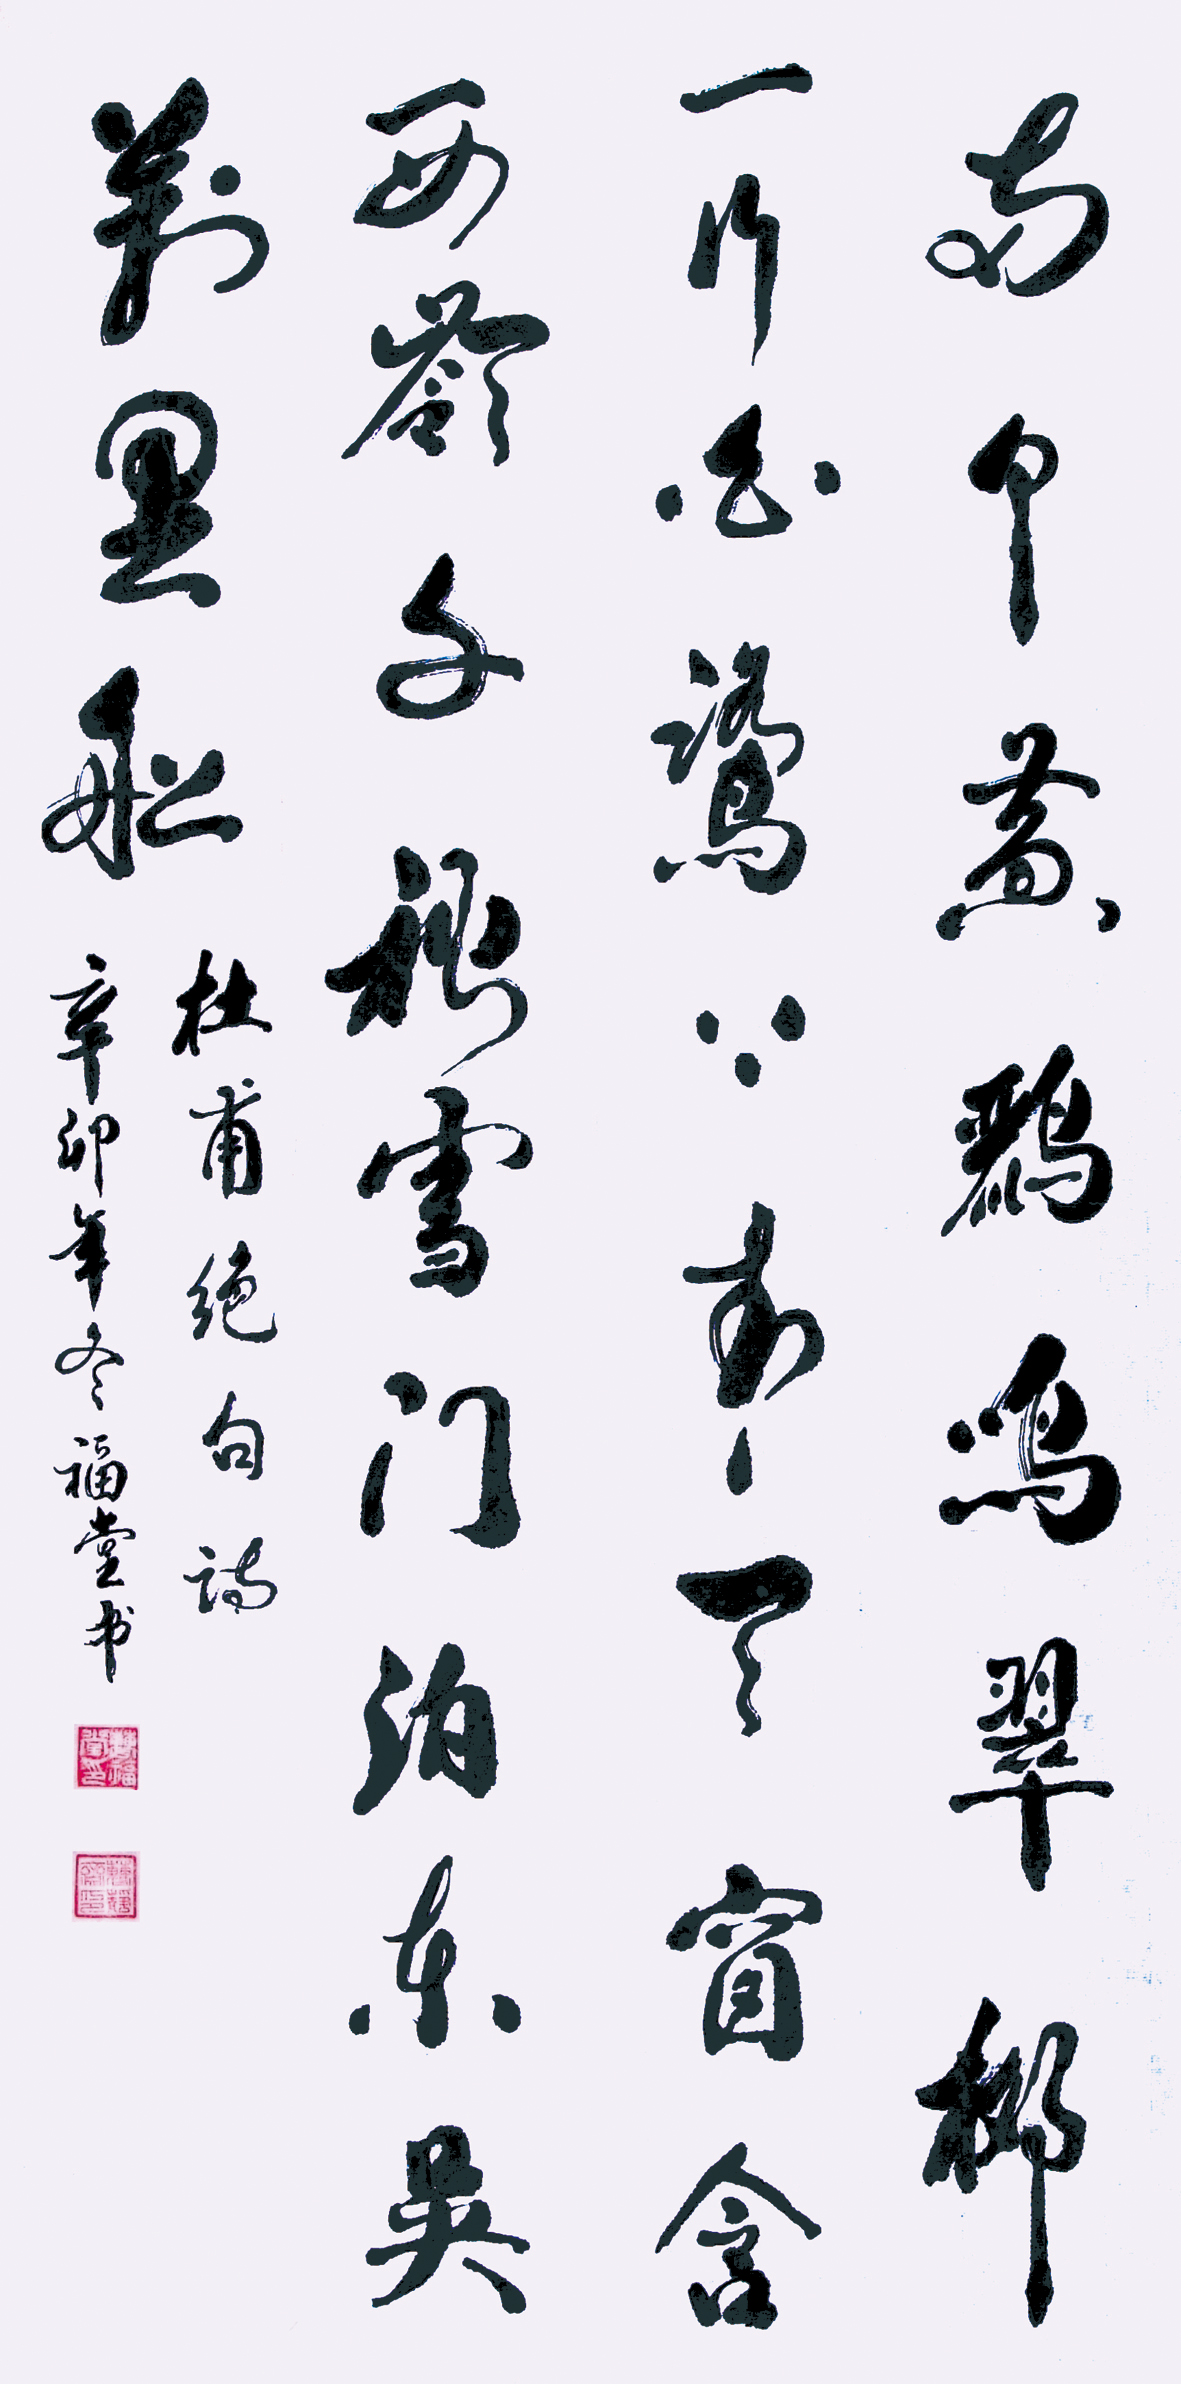 两个黄鸝鳴翠柳
一行白鷺上青天窗含
西嶺千秋雪门泊东吴
萬里船
杜甫绝句诗
辛卯年冬福堂书